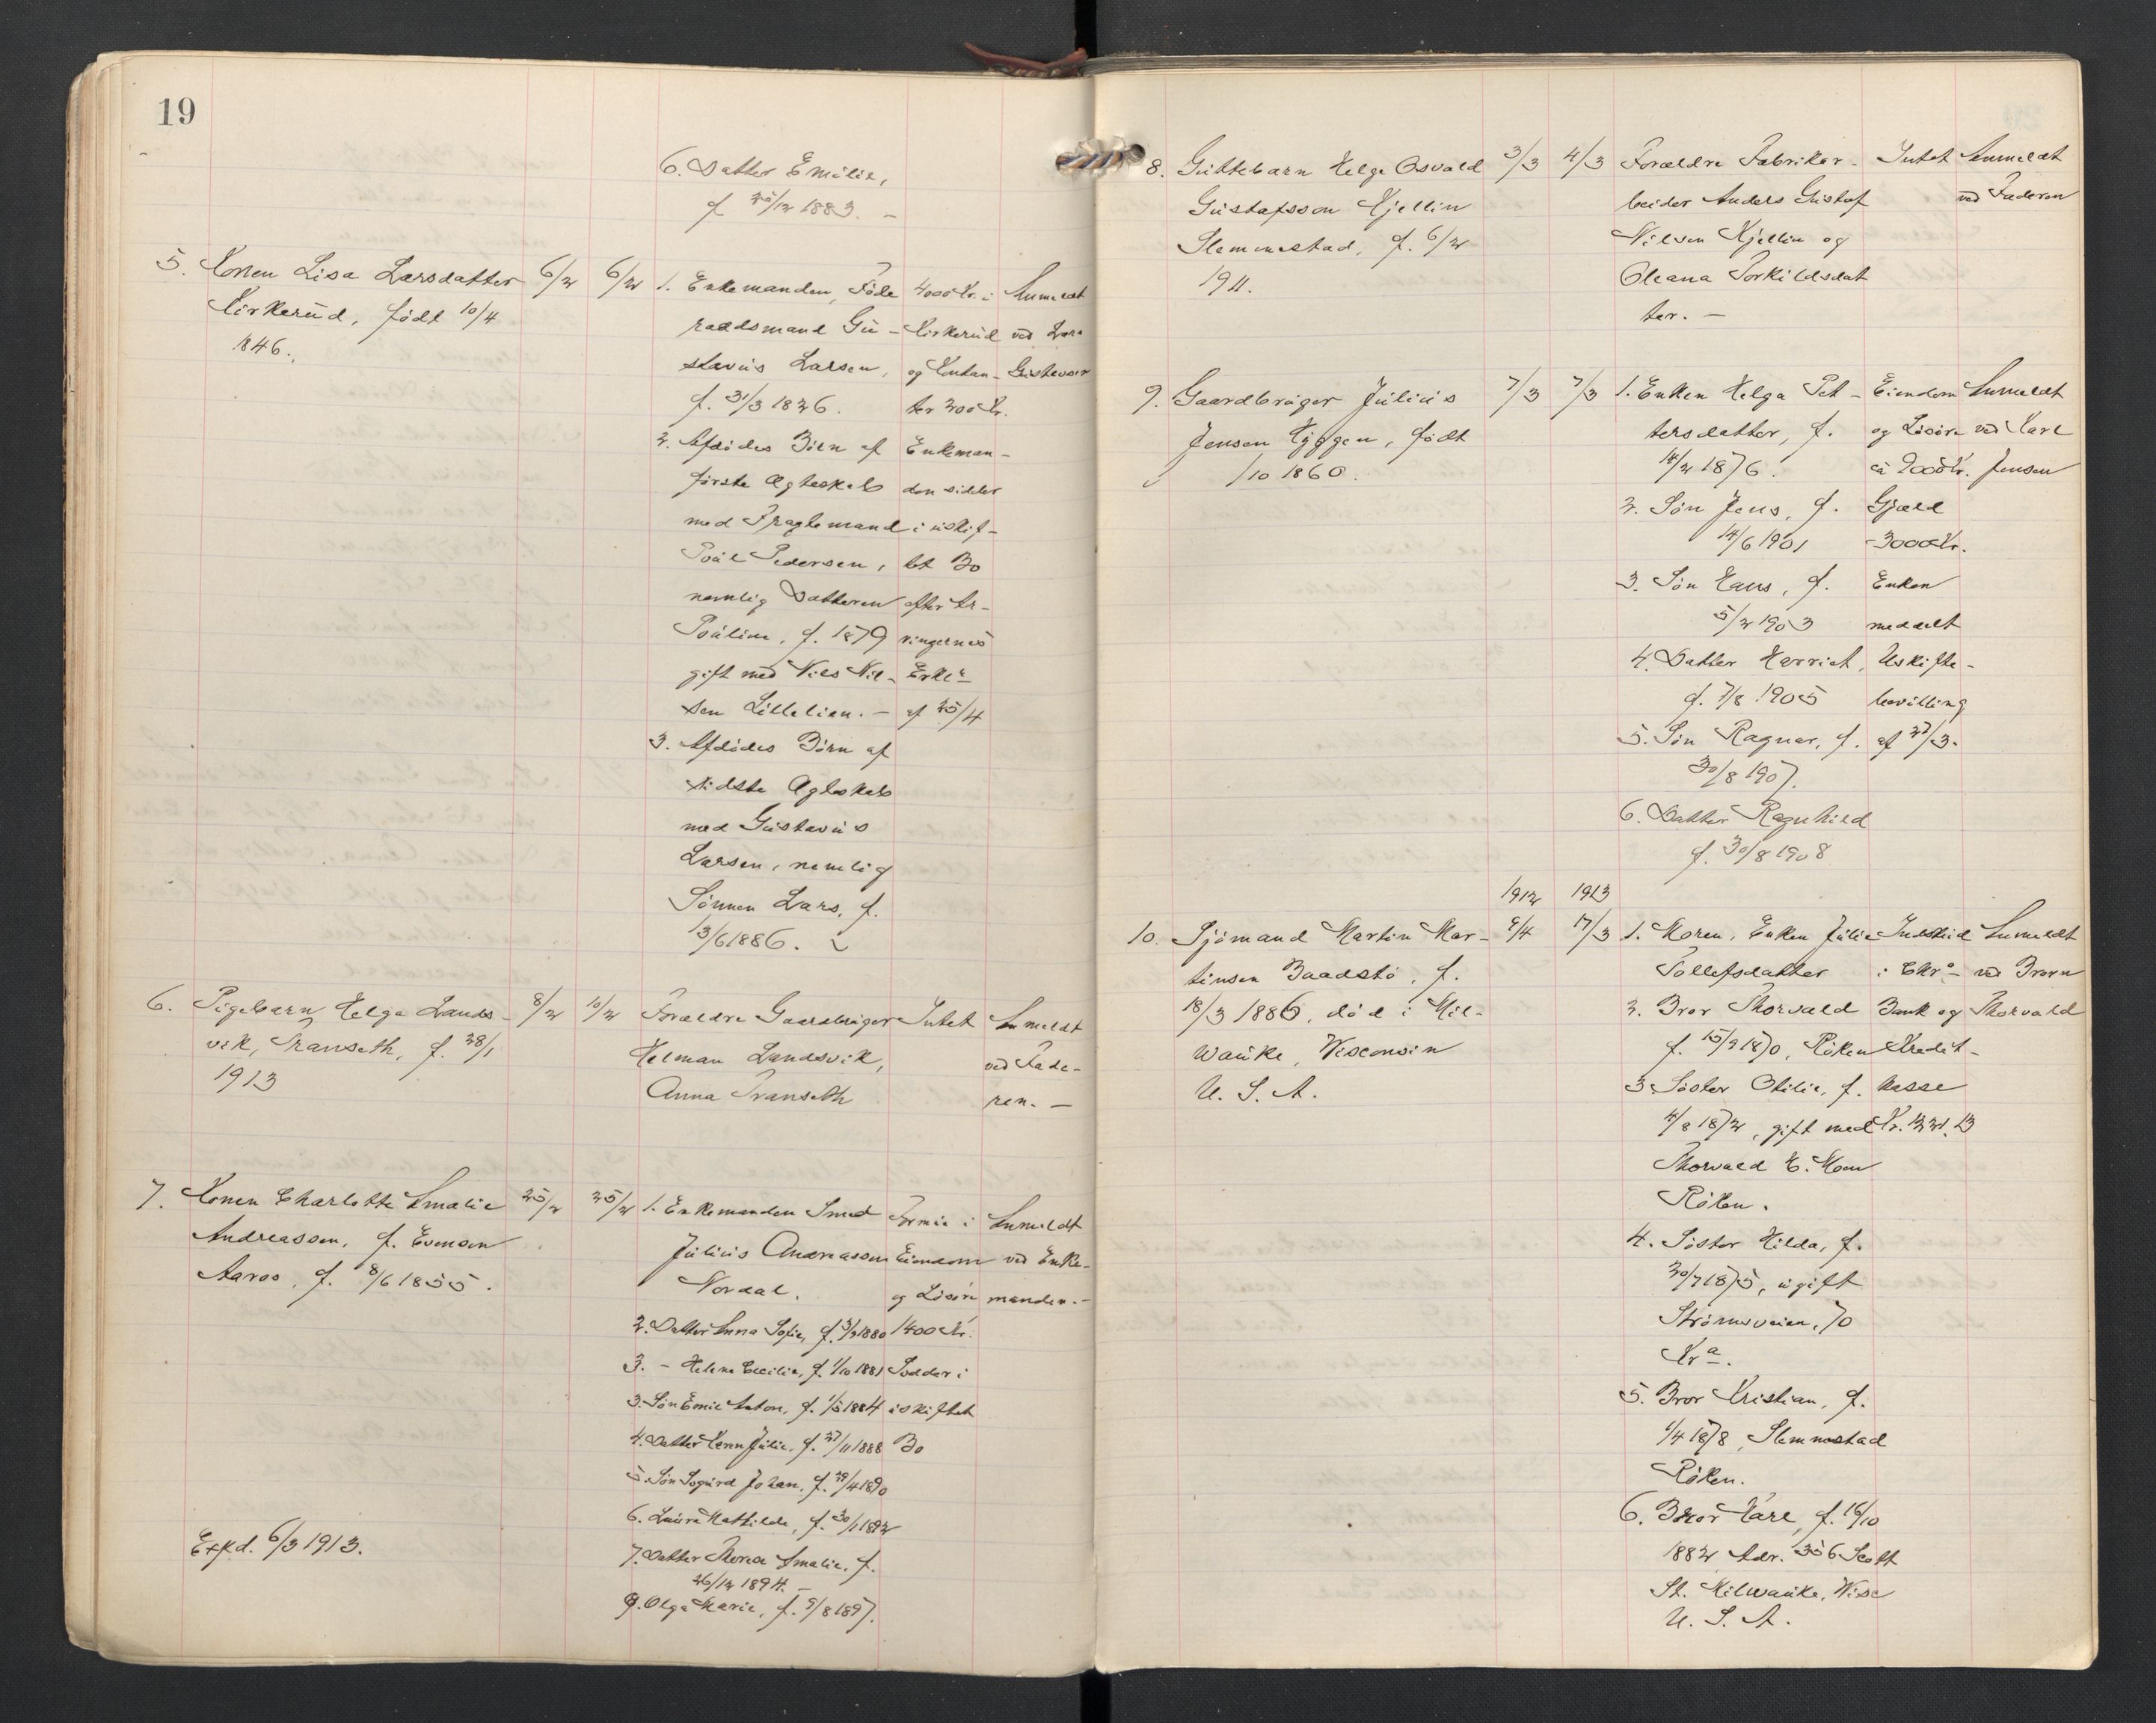 19
6. Datter Emilie,
f 25/12 1883. –
5. Konen Lisa Larsdatter
Kirkerud, født 10/4
1846.
6/2
6/2
1. Enkemanden, Føde
raadsmand Gu-
stavus Larsen,
f. 31/3 1826.
2. Afdødes Børn af
første Ægteskab
med Fragtemand
Poul Pedersen,
nemlig Datteren
Pouline, f. 1879
gift med Nils Nil-
sen Lillelien. –
3. Afdødes Børn af
sidste Ægteskab
med Gustavus
Larsen, nemlig
Sønnen Lars, f.
13/6 1886.
4000 Kr. i
Kirkerud
og Kontan-
ter 200 Kr.
Enkeman-
den sidder
i uskif-
tet Bo
efter Ar-
vingernes
Erkl.
af 25/4
Anmeldt
ved Lars
Gustavsen
6. Pigebarn Helga Lands-
vik, Transeth, f. 28/1
1913
8/2
10/2
Forældre Gaardbruger
Helman Landsvik,
Anna Transeth
Intet
Anmeldt
ved Fade-
ren. –
7. Konen Charlotte Amalie
Andreassen, f. Evensen
Aaros, f. 8/6 1855.
25/2
25/2
1. Enkemanden Smed
Julius Andreassen
Nordal.
2. Datter Anna Sofie, f. 3/9 1880
3. – Helene Cecilie, f. 1/10 1881
3. Søn Emil Anton, f. 1/5 1884
4. Datter Jenn Julie, f. 27/11 1888
5. Søn Sogurd Johan, f. 29/4 1890
6. Laura Mathilde, f. 30/1 1892
7. Datter Thora Amalie, f.
26/12 1894. –
9. Olga Marie, f. 9/8 1897.
Formue i
Eiendom
og Løsøre
1400 Kr.
Sidder i
uskiftet
Bo
Anmeldt
ved Enke-
manden. –
Exp.d. 6/3 1913.
8. Guttebarn Helge Osvald
Gustafsson Kjellin
Slemmestad, f. 6/2
1911.
3/3
4/3
Forældre Fabrikar-
beider Anders Gustaf
Nilsen Kjellin og
Oleana Torkildsdat
ter. –
Intet
Anmeldt
ved Faderen
9. Gaardbruger Julius
Jensen Hyggen, født
/10 1860.
7/3
7/3
1. Enken Helga Pet-
tersdatter, f.
14/2 1876.
2. Søn Jens, f.
14/6 1901
3. Søn Hans, f.
5/2 1903
4. Datter Harriet,
f. 7/8 1905
5. Søn Ragnar, f.
30/8 1907.
6. Datter Ragnhild
f. 30/8 1908
Eiendom
og Løsøre
ca 9000 Kr.
Gjæld
3000 Kr.
Enken
meddelt
Uskifte-
bevilling
af 27/3.
Anmeldt
ved Karl
Jensen
10. Sjømand Martin Mar-
tinsen Baadstø, f.
18/3 1886, død i Mil-
wauke, Visconsin
U. S. A.
1912
9/4
1913
17/3
1. Moren, Enken Julie
Tollefsdatter
2. Bror Thorvald
f. 15/9 1870, Røken
3. Søster Otilie, f.
4/8 1872, gift med
Thorvald E. Moen
Røken.
4. Søster Hilda, f.
30/7 1875, ugift
Strømsveien, 70
Kr.a.
5. Bror Kristian, f.
1/4 1878, Slemmestad
Røken.
6. Bror Karl, f. 16/10
1882 Adr. 356 Scott
St. Milwauke, Visc
U. S. A.
Indskud
i Chr.a
Bank og
Kredit-
kasse
Kr. 1221.13
Anmeldt
ved Broren
Thorvald